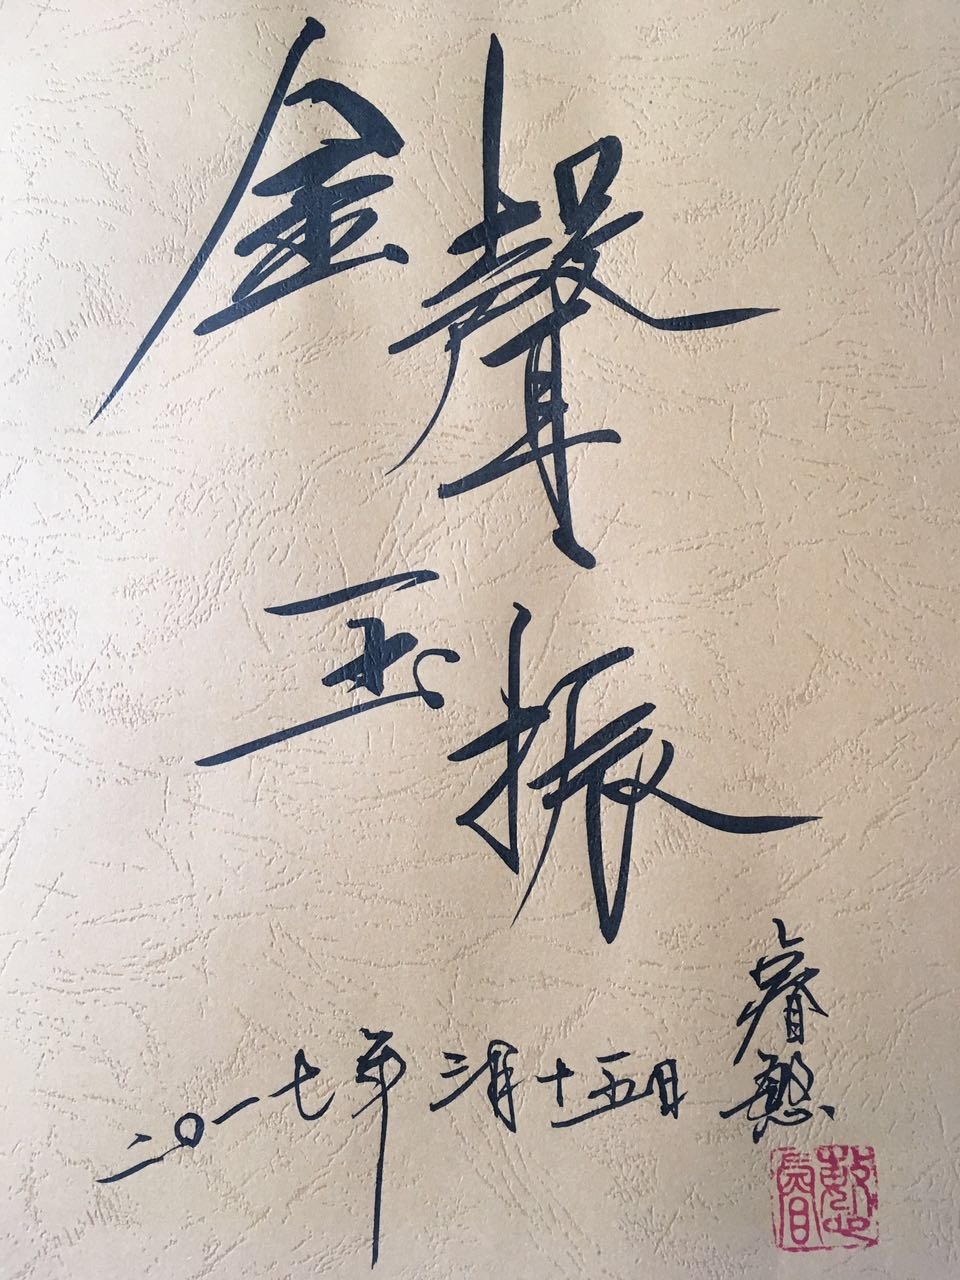 金聲
玉振
二〇一七年三月十五日
睿憨